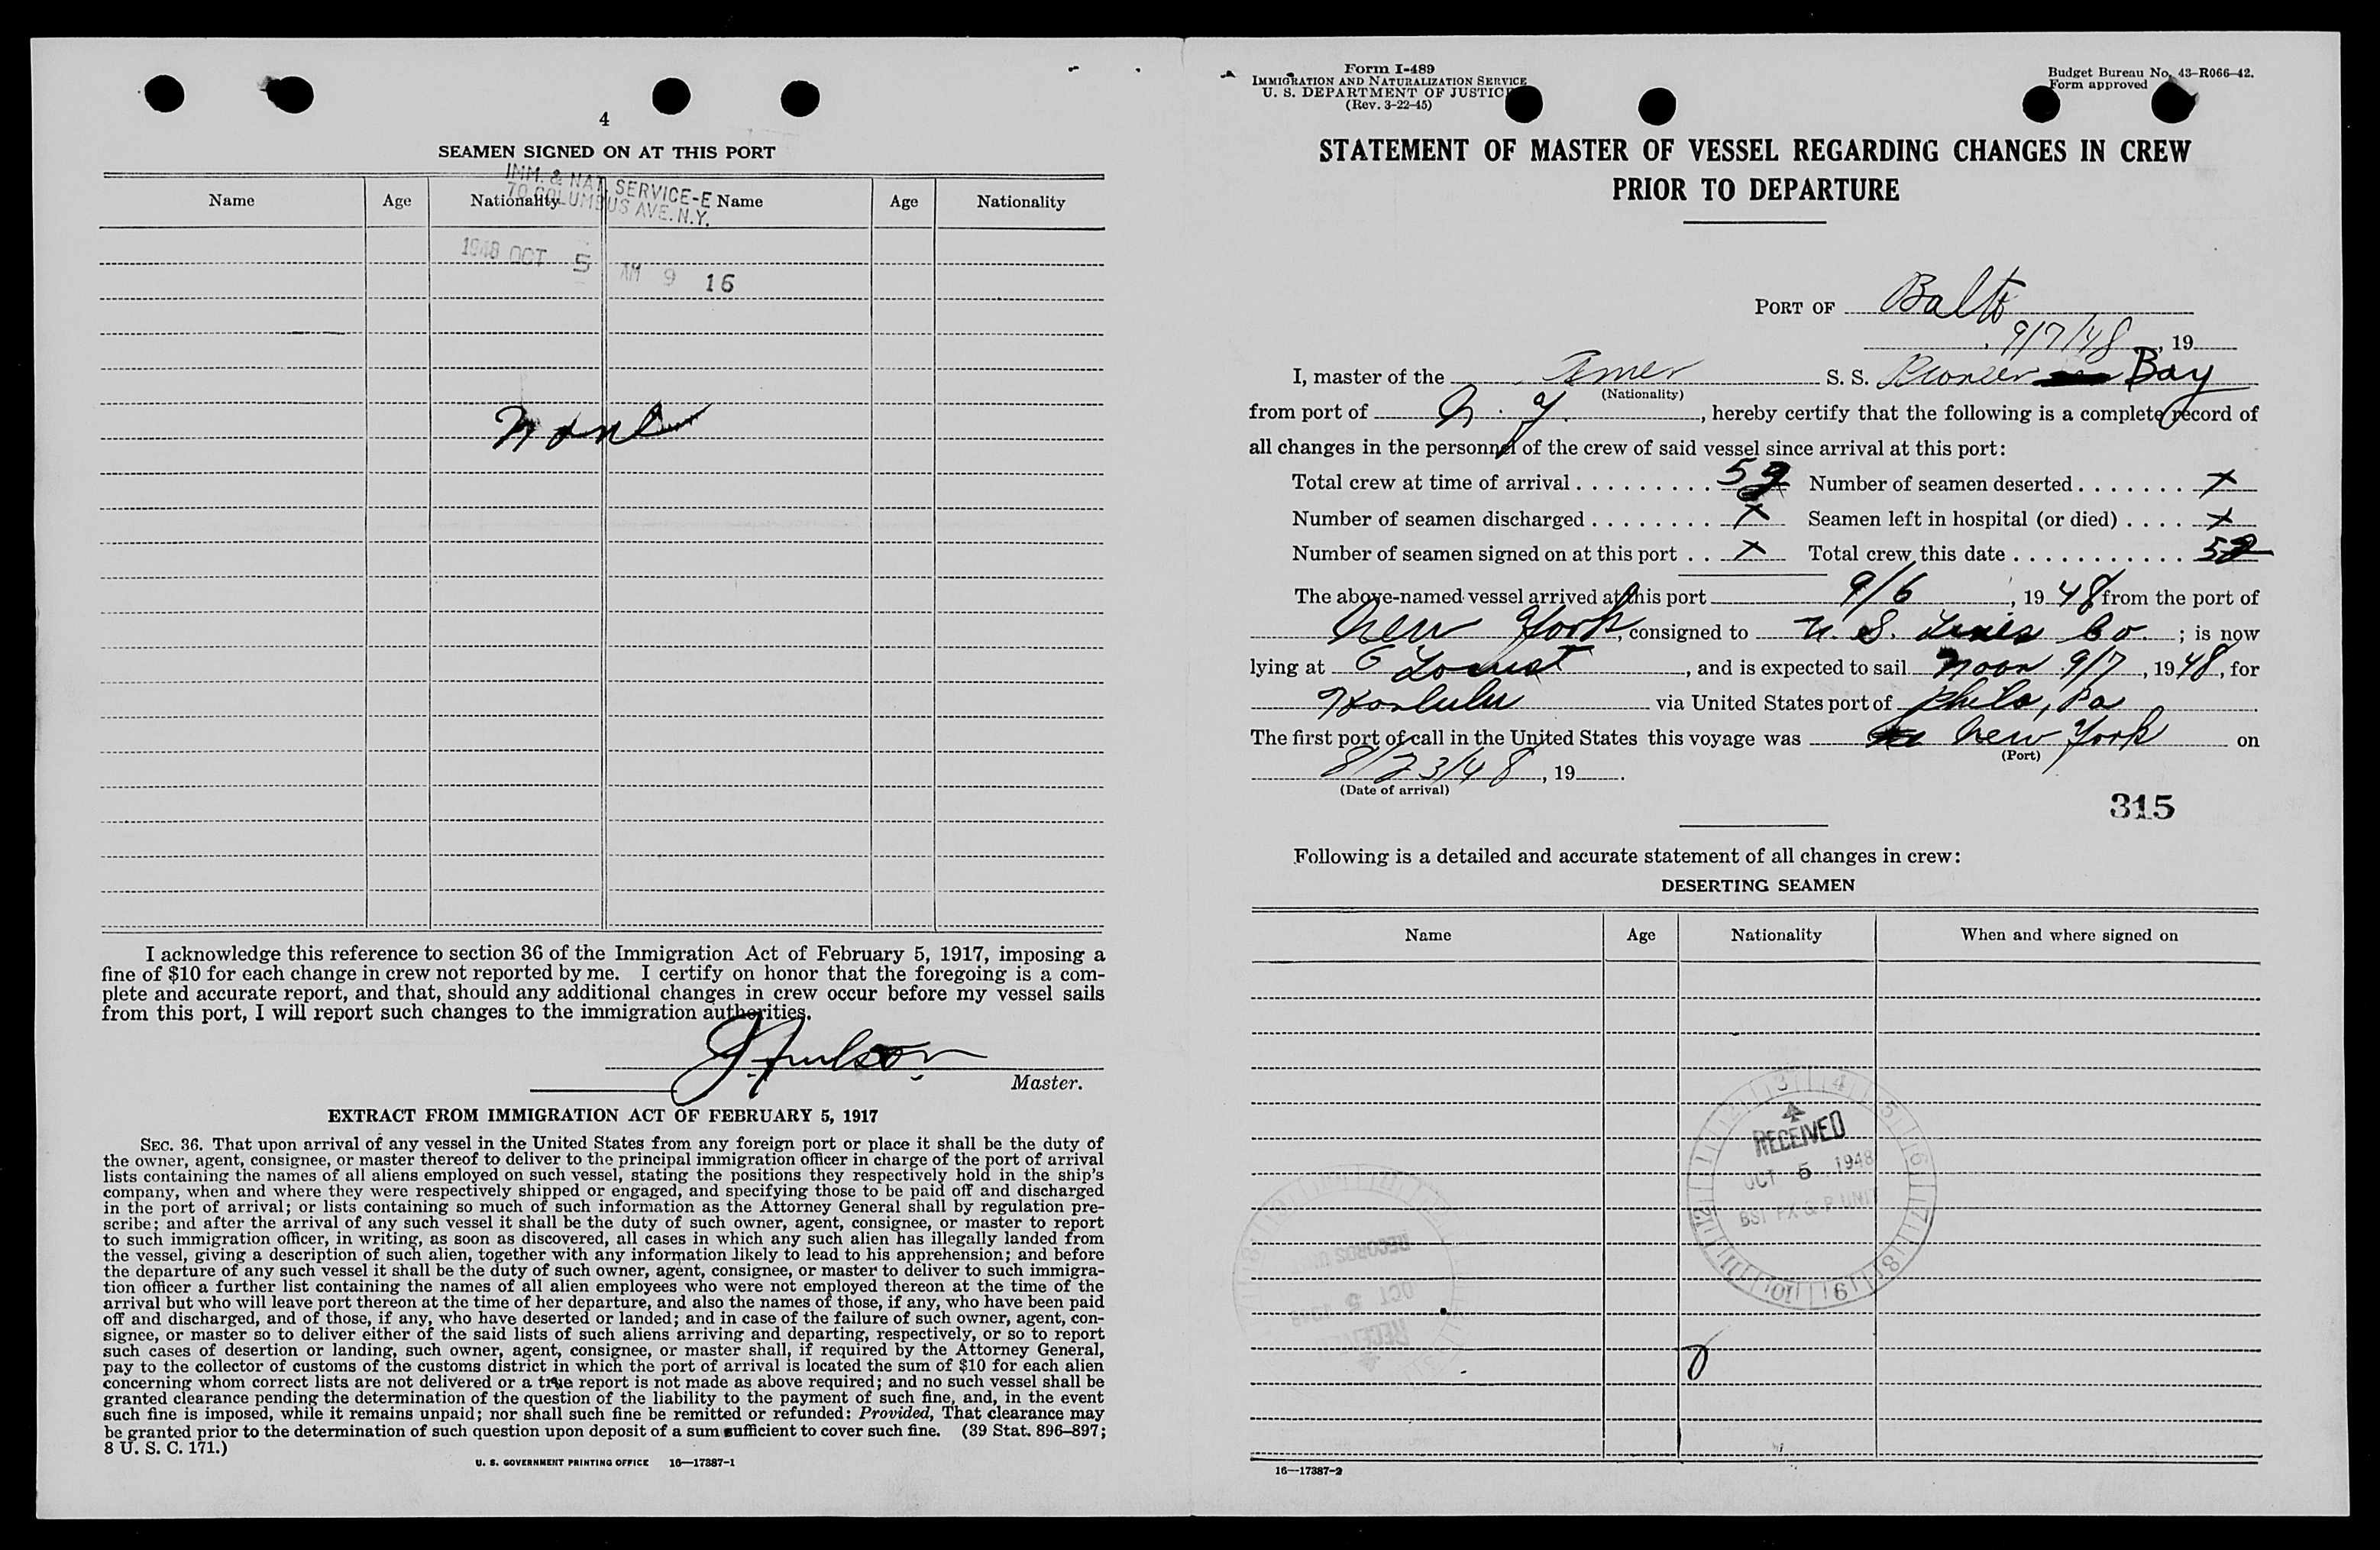 4
SEAMEN SIGNED ON AT THIS PORT
IMM. & NAT. SERVICE-E
70 COLUMBUS AVE. N.Y.
Name Age Nationality Name Age Nationality
1948 OCT 5 AM 9 16
None
I acknowledge this reference to section 36 of the Immigration Act of February 5, 1917, imposing a
fine of $10 for each change in crew not reported by me. I certify on honor that the foregoing is a com-
plete and accurate report, and that, should any additional changes in crew occur before my vessel sails
from this port, I will report such changes to the immigration authorities.
Master.
EXTRACT FROM IMMIGRATION ACT OF FEBRUARY 5, 1917
SEC. 36. That upon arrival of any vessel in the United States from any foreign port or place it shall be the duty of
the owner, agent, consignee, or master thereof to deliver to the principal immigration officer in charge of the port of arrival
lists containing the names of all aliens employed on such vessel, stating the positions they respectively hold in the ship's
company, when and where they were respectively shipped or engaged, and specifying those to be paid off and discharged
in the port of arrival; or lists containing so much of such information as the Attorney General shall by regulation pre-
scribe; and after the arrival of any such vessel it shall be the duty of such owner, agent, consignee, or master to report
to such immigration officer, in writing, as soon as discovered, all cases in which any such alien has illegally landed from
the vessel, giving a description of such alien, together with any information likely to lead to his apprehension; and before
the departure of any such vessel it shall be the duty of such owner, agent, consignee, or master to deliver to such immigra-
tion officer a further list containing the names of all alien employees who were not employed thereon at the time of the
arrival but who will leave port thereon at the time of her departure, and also the names of those, if any, who have been paid
off and discharged, and of those, if any, who have deserted or landed; and in case of the failure of such owner, agent, con-
signee, or master so to deliver either of the said lists of such aliens arriving and departing, respectively, or so to report
such cases of desertion or landing, such owner, agent, consignee, or master shall, if required by the Attorney General,
pay to the collector of customs of the customs district in which the port of arrival is located the sum of $10 for each alien
concerning whom correct lists are not delivered or a true report is not made as above required; and no such vessel shall be
granted clearance pending the determination of the question of the liability to the payment of such fine, and, in the event
such fine is imposed, while it remains unpaid; nor shall such fine be remitted or refunded: Provided, That clearance may
be granted prior to the determination of such question upon deposit of a sum sufficient to cover such fine. (39 Stat. 896–897;
8 U. S. C. 171.)
U. S. GOVERNMENT PRINTING OFFICE 16—17387-1
Form I-489
IMMIGRATION AND NATURALIZATION SERVICE
U. S. DEPARTMENT OF JUSTICE
(Rev. 3-22-45)
Budget Bureau No. 43–R066–42.
Form approved
STATEMENT OF MASTER OF VESSEL REGARDING CHANGES IN CREW
PRIOR TO DEPARTURE
PORT OF Balto
9/7/48, 19
I, master of the Amer S. S. Pioneer Bay
(Nationality)
from port of N. Y., hereby certify that the following is a complete record of
all changes in the personnel of the crew of said vessel since arrival at this port:
Total crew at time of arrival . . . . . . . . . 52 Number of seamen deserted . . . . . . . X
Number of seamen discharged . . . . . . . . X Seamen left in hospital (or died) . . . . X
Number of seamen signed on at this port . . X Total crew this date . . . . . . . . . . . . 52
The above-named vessel arrived at this port 9/6, 1948 from the port of
New York, consigned to U. S. Lines Co. ; is now
lying at 6 Locust, and is expected to sail Noon 9/7, 1948, for
Honlulu via United States port of Phila, Pa
The first port of call in the United States this voyage was New York on
(Port)
8/23/48, 19.
(Date of arrival)
315
Following is a detailed and accurate statement of all changes in crew:
DESERTING SEAMEN
Name Age Nationality When and where signed on
RECEIVED
OCT 5 1948
RECORDS
OCT 5 1948
RECEIVED
16—17387-2